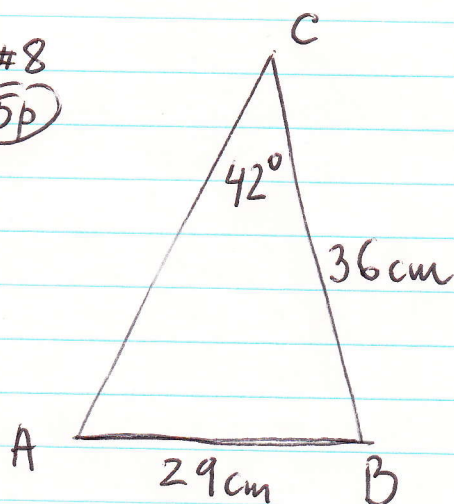 #8
5p
C
42°
36cm
A
29cm
B